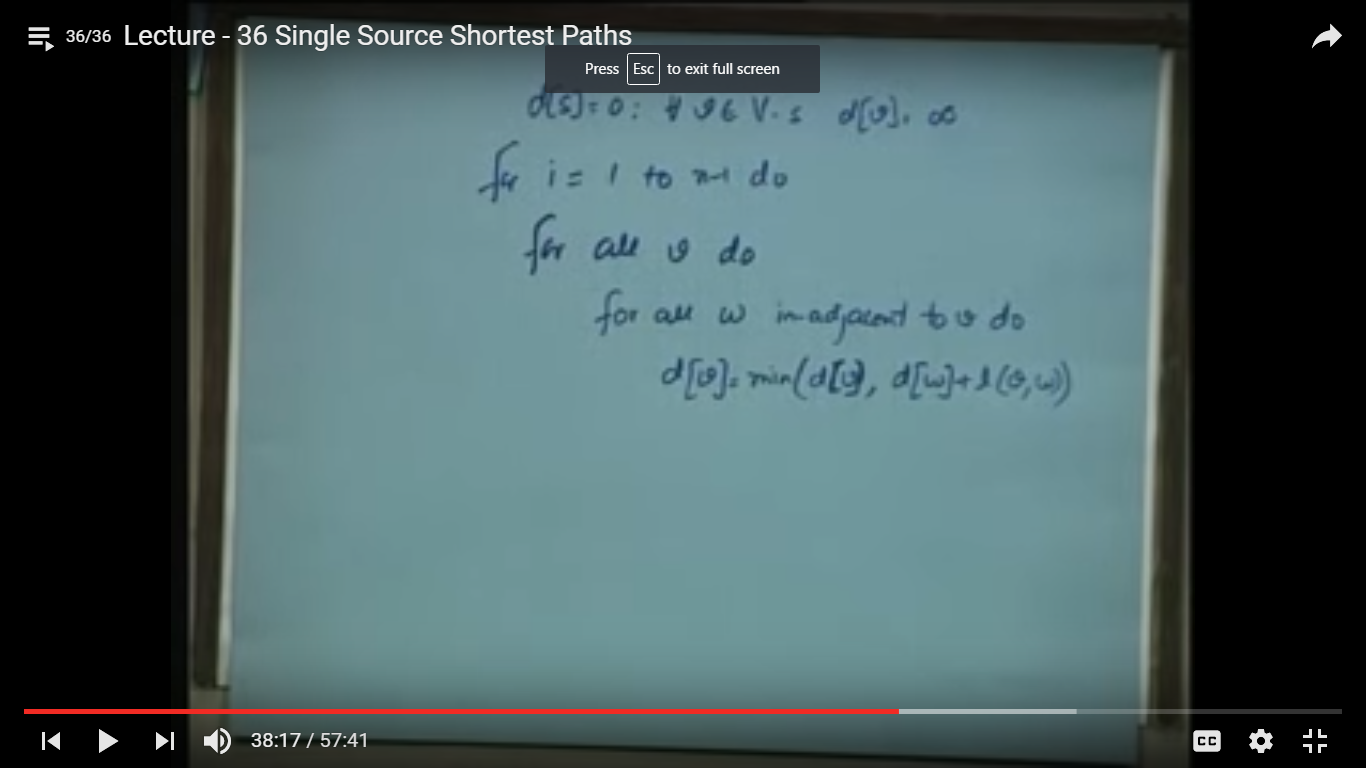 36/36 Lecture - 36 Single Source Shortest Paths
Press Esc to exit full screen
d[s]=0: ∀ v∈ V-s d[v]= ∞
for i = 1 to n-1 do
for all v do
for all w in adjacent to v do
d[v]= min(d[v], d[w]+l(v,w))
38:17 / 57:41
CC